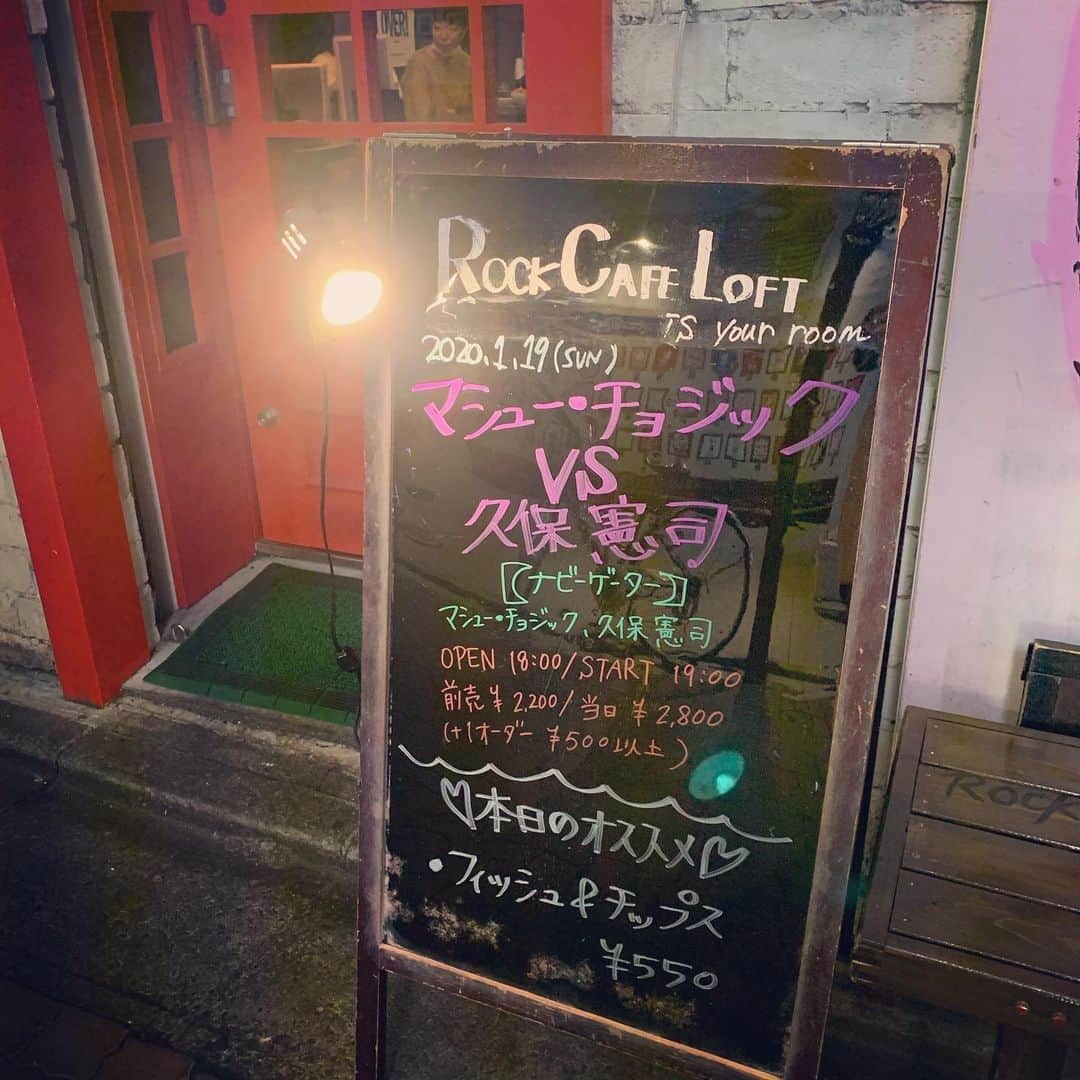 OVER!
ROCK CAFE LOFT
is your room
2020.1.19 (SUN)
マシュー・チョジック
VS
久保憲司
【ナビーゲーター】
マシュー・チョジック、久保憲司
OPEN 18:00/START 19:00
前売¥2,200/当日¥2,800
(+1オーダー ¥500以上)
♡本日のオススメ♡
・フィッシュ&チップス
¥550
ROCK